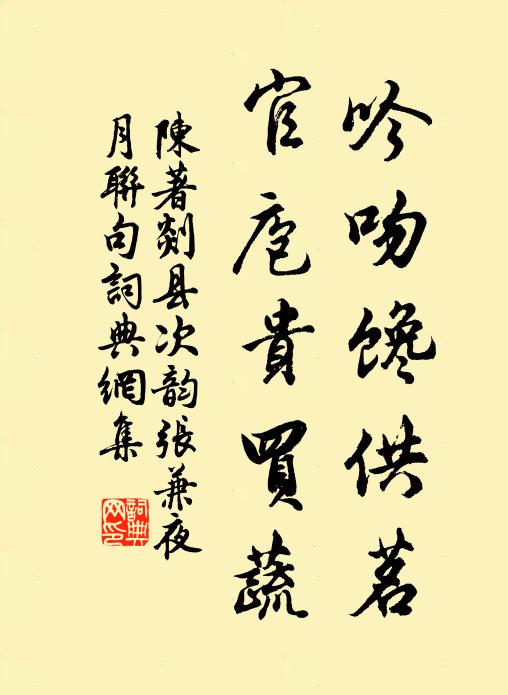 吟吻馋供茗
官庖貴買蔬
陳著剡县次韵張兼夜
月聯句詞典網集
詞典
网印